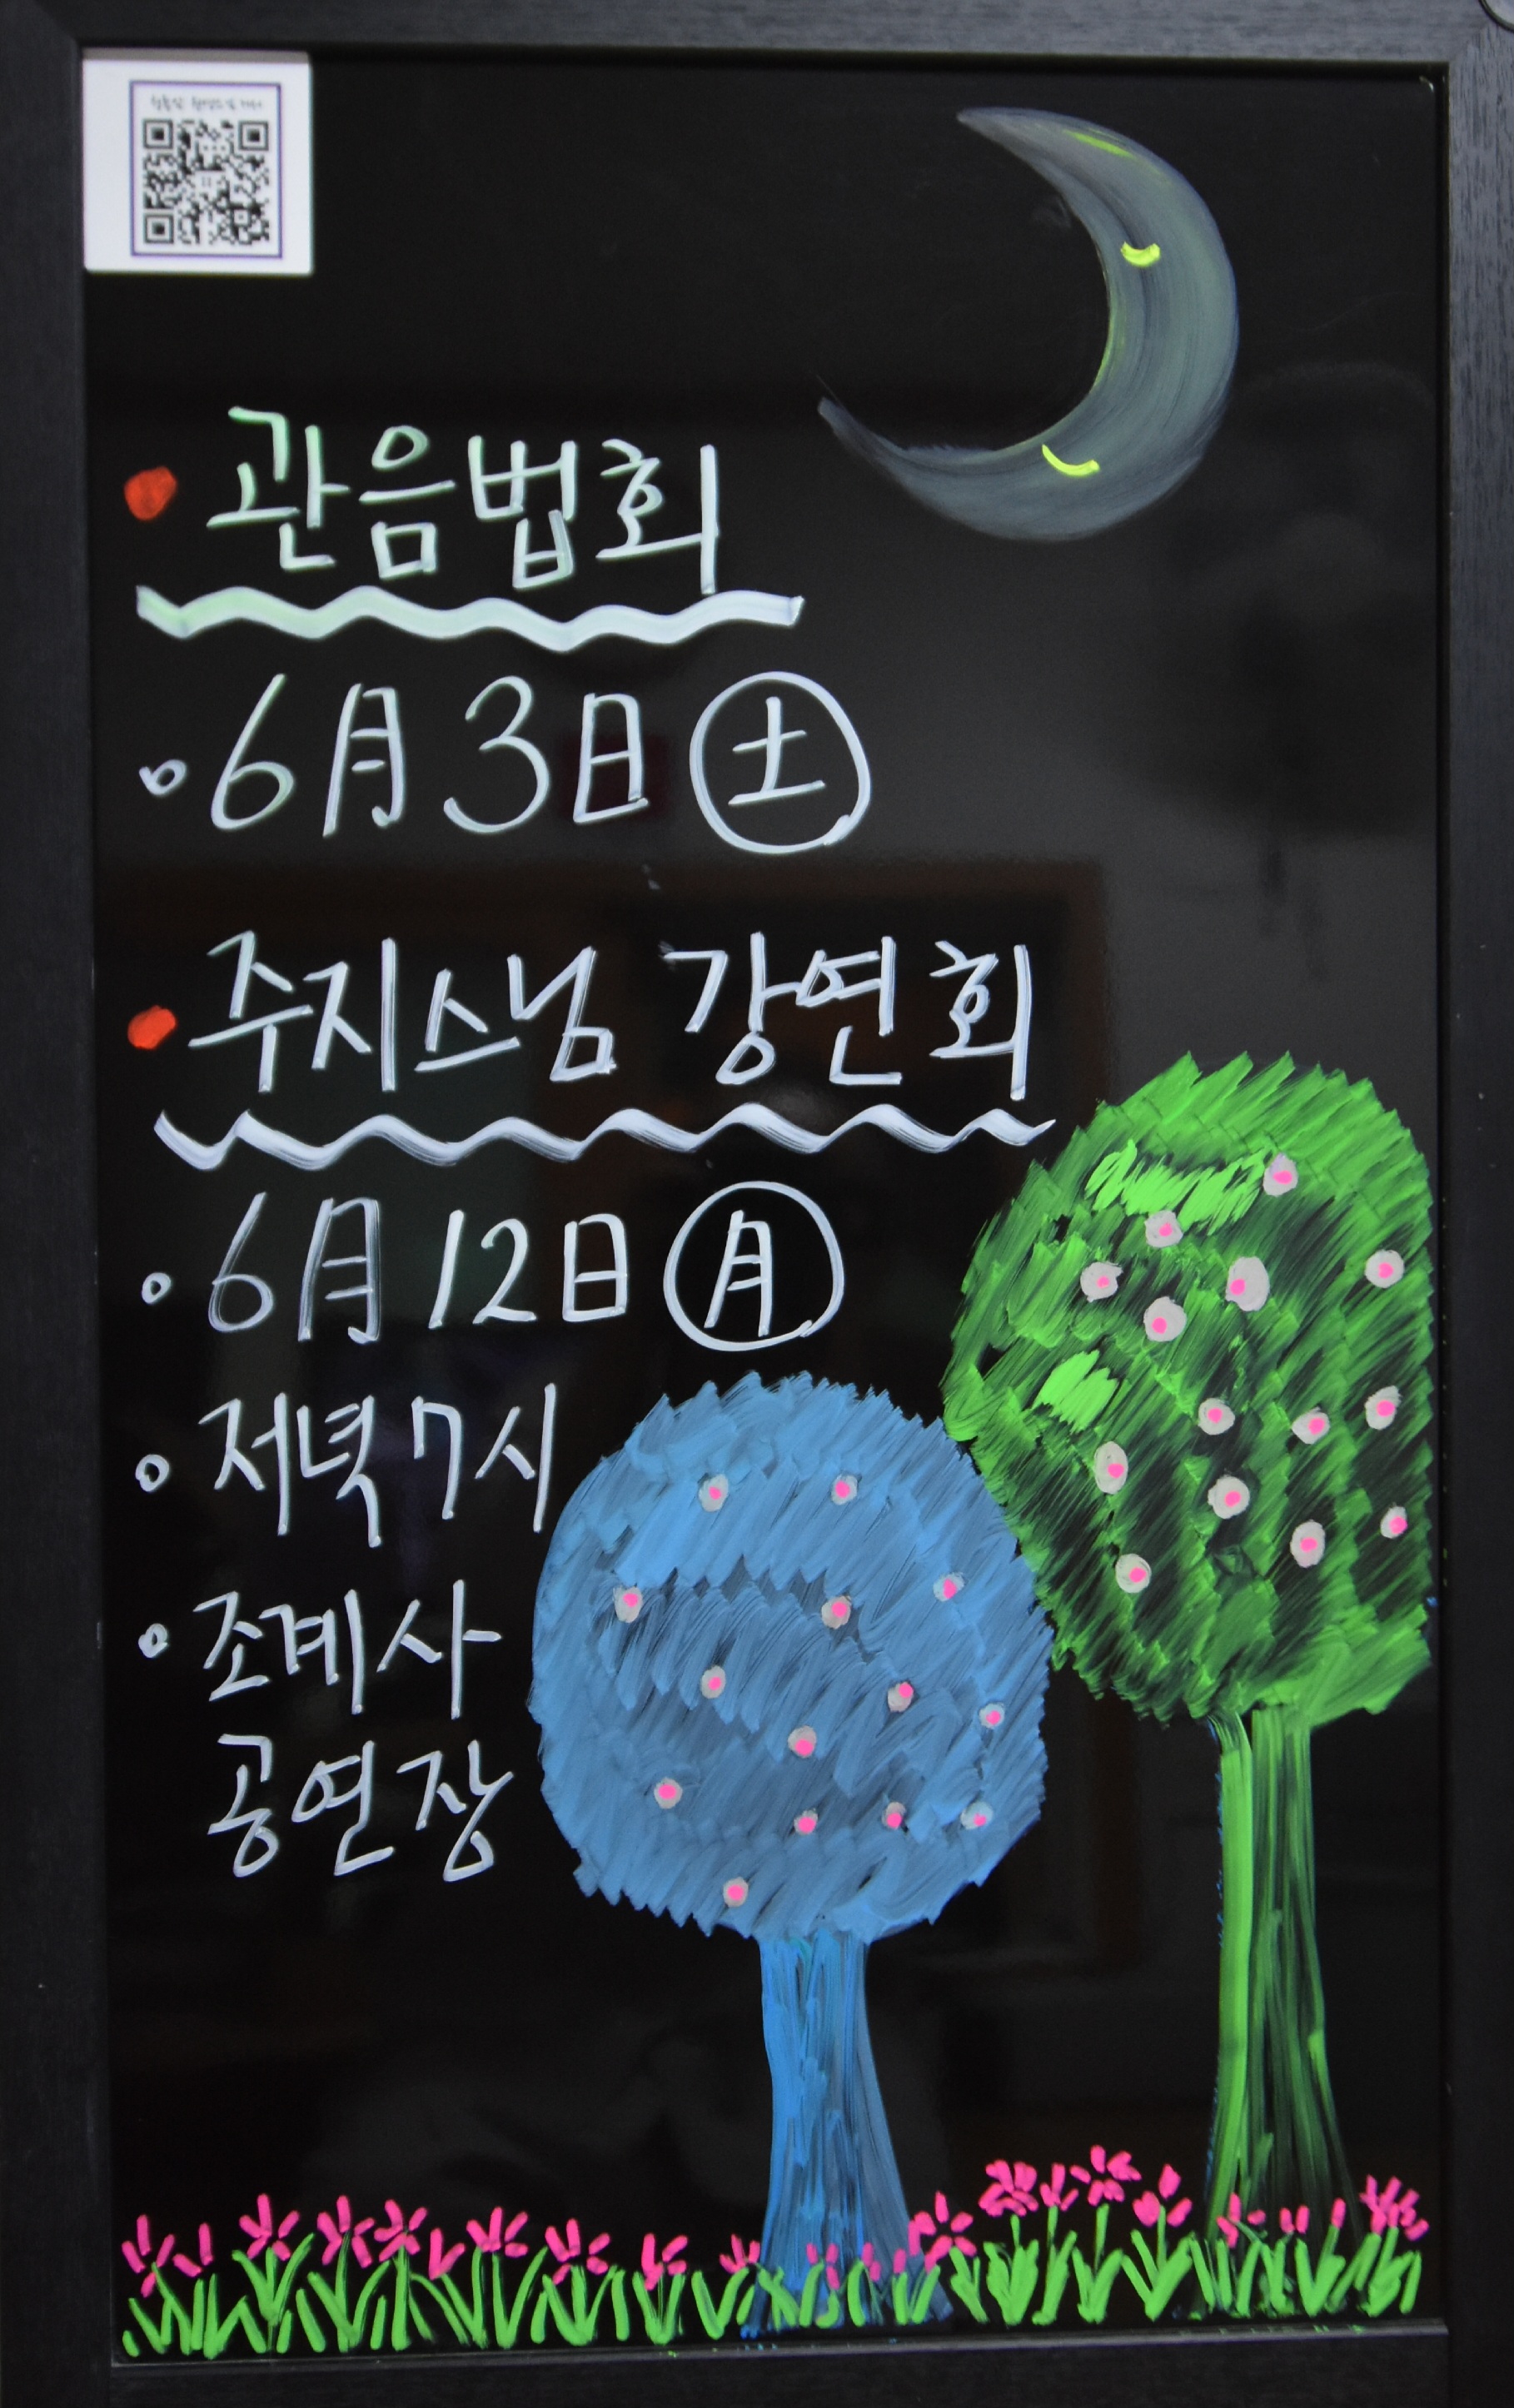 관음법회
6月 3日 土
주지스님 강연회
6月 12日 月
저녁 7시
조계사
공연장